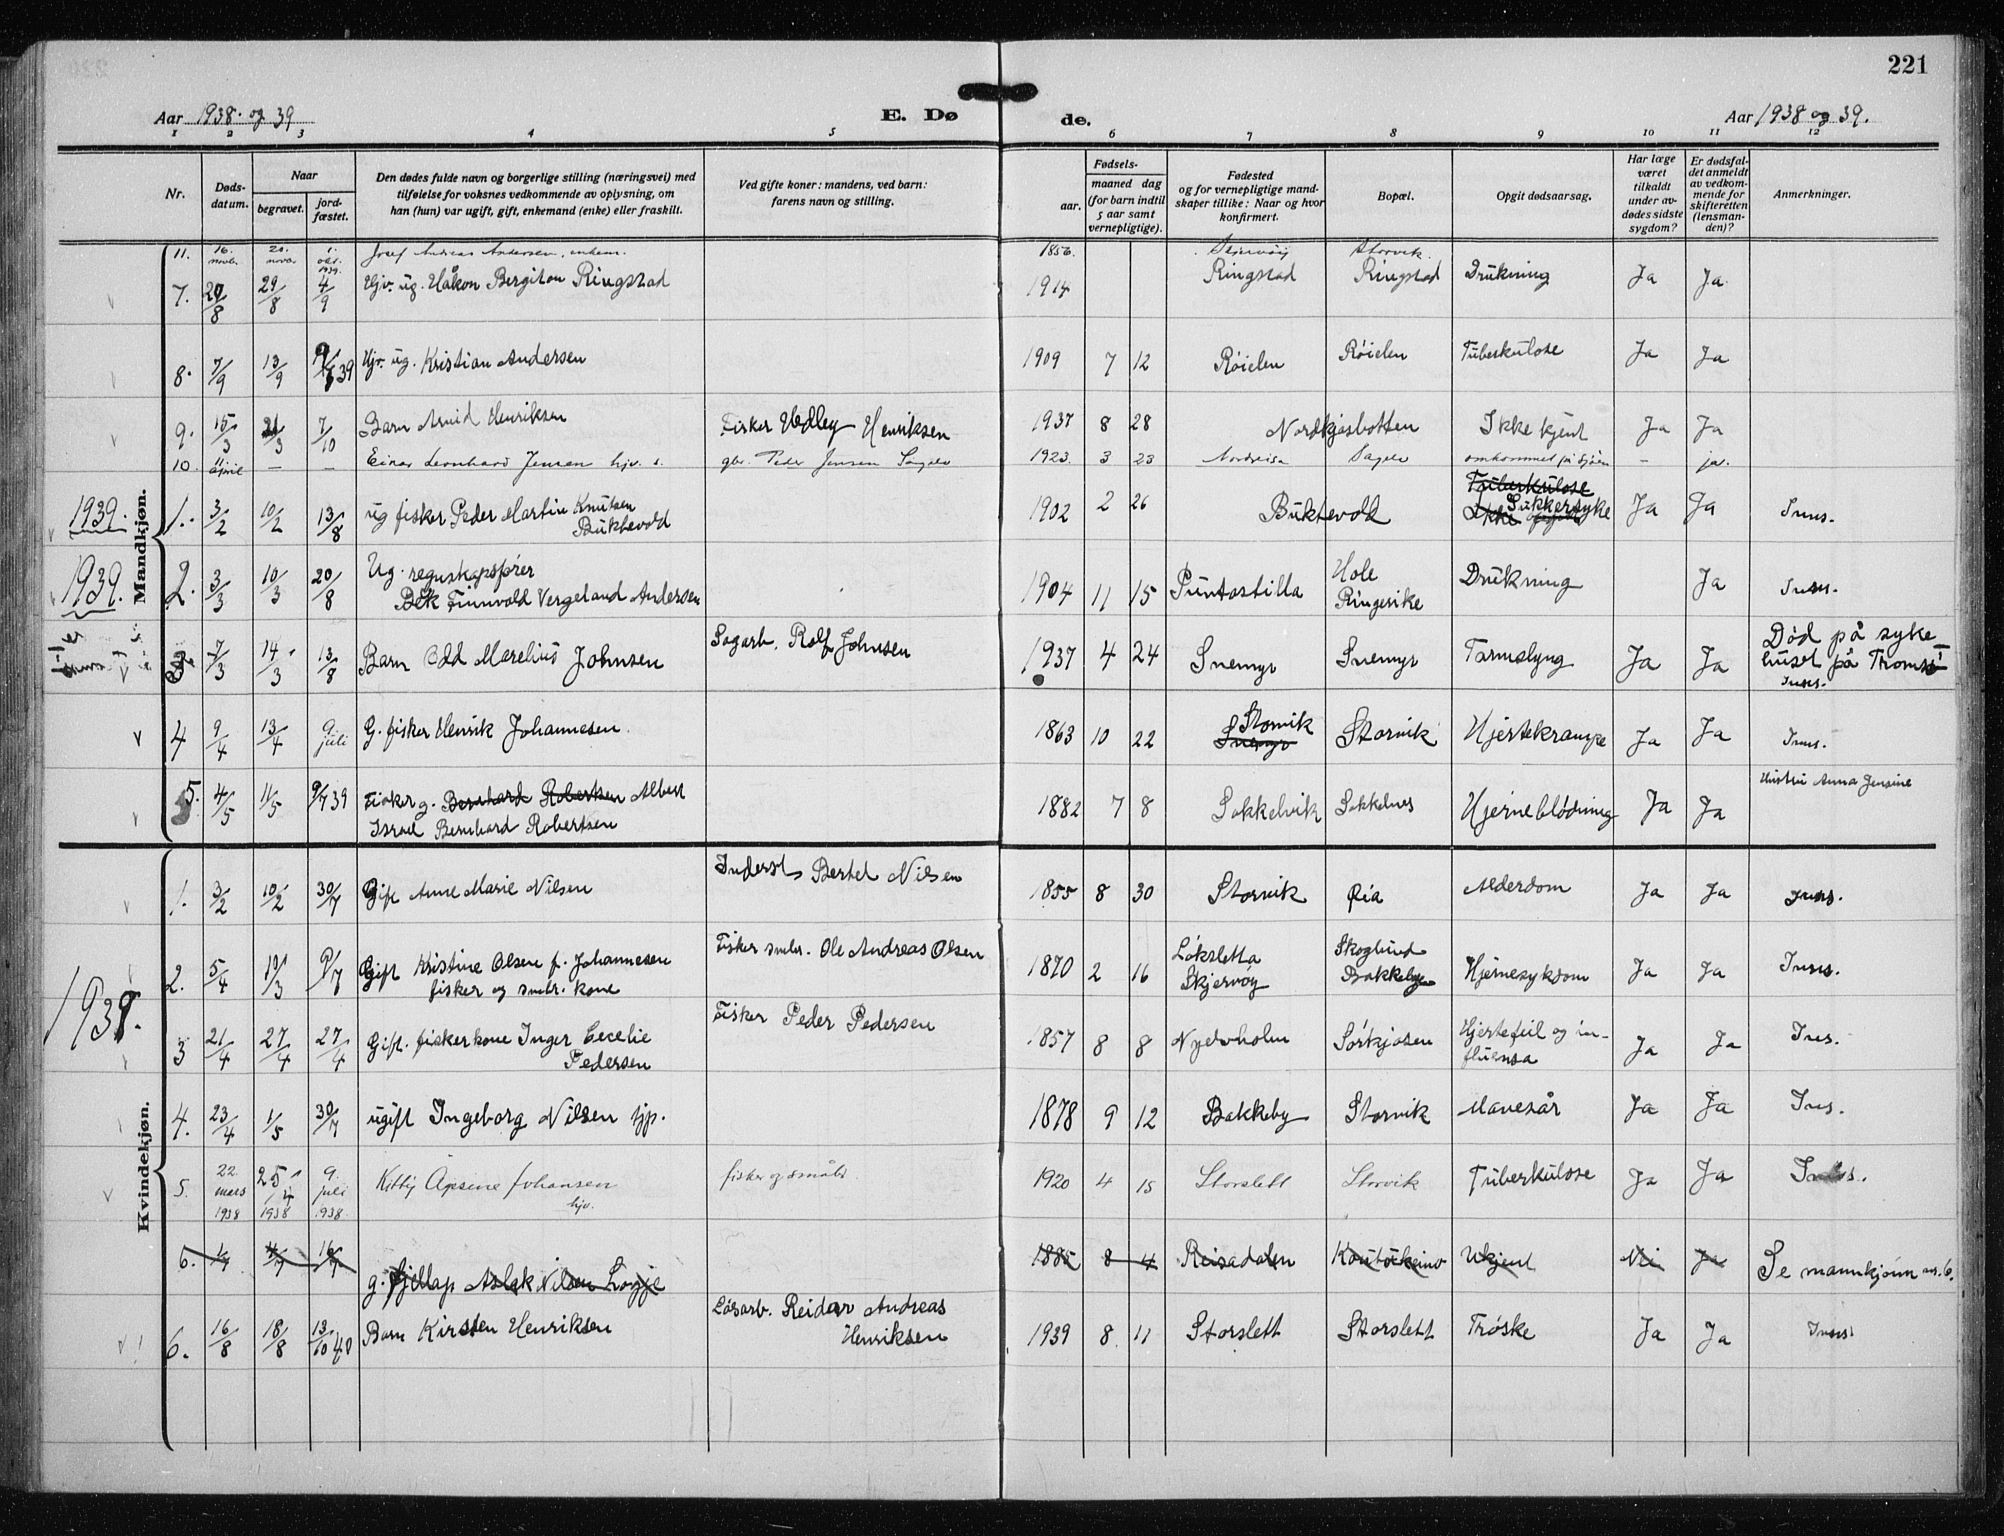 221
Aar 1938. og 39
E. Dø
de.
Aar 1938 og 39.
1 2 3 4 5 6 7 8 9 10 11 12
Nr.
Døds-
datum.
Naar
begravet.
jord-
fæstet.
Den dødes fulde navn og borgerlige stilling (næringsvei) med
tilføielse for voksnes vedkommende av oplysning, om
han (hun) var ugift, gift, enkemand (enke) eller fraskilt.
Ved gifte koner: mandens, ved barn:
farens navn og stilling.
Fødsels-
aar.
maaned dag
(for barn indtil
5 aar samt
vernepligtige).
Fødested
og for vernepligtige mand-
skaper tillike: Naar og hvor
konfirmert.
Bopæl.
Opgit dødsaarsag.
Har læge
været
tilkaldt
under av-
dødes sidste
sygdom?
Er dødsfal-
det anmeldt
av vedkom-
mende for
skifteretten
(lensman-
den)?
Anmerkninger.
Mandkjøn.
11. 16. novbr. 20. novbr. 1. okt. 1939. Josef Andreas Andersen, enkem. 1856. Skjervøy Storvik.
7. 29/8 29/8 4/9 Hjv. ug. Håkon Bergiton Ringstad 1914 Ringstad Ringstad Drukning Ja Ja.
8. 7/9 13/9 9/7 39 Hjv. ug. Kristian Andersen 1909 7 12 Røielen Røielen Tuberkulose Ja Ja
9. 15/3 21/3 7/10 Barn Arvid Henriksen Fisker Hedley Henriksen 1937 8 28 Nordkjosbotten Ikke kjent Ja Ja
10. 11 april — — Einar Leonhard Jensen hjv. s. gbr. Peder Jensen Sagelv 1923. 3 23 Nordreisa Sagelv omkommet på sjøen - ja.
1939. 1. 3/2 10/2 13/8 ug fisker Peder Martin Knutsen
Buktevold 1902 2 26 Buktevold Tuberkulose
Sukkersyke
Ikke opgitt Ja Ja Inns.
1939. 2. 3/3 10/3 20/8 Ug. regnskapsfører
Bek Finnvald Vergeland Andersen 1904 11 15 Puntastilla Hole
Ringerike Drukning Ja Inns.
3. 7/3 14/3 13/8 Barn Odd Marelius Johnsen Sagarb. Rolf Johnsen 1937 4 24 Snemyr Snemyr Tarmslyng Ja Ja Død på syke-
huset på Tromsø
Inns.
4 9/4 13/4 9. juli G. fisker Henrik Johannesen. 1863 10 22 Storvik
Snemyr Storvik Hjertekrampe Ja Ja Inns.
5. 4/5 11/5 9/7 39 Fisker g. Bernhard Robertsen Albert
Israel Bernhard Robertsen 1882 7 8 Sokkelvik Sokkelnes Hjerneblødning Ja Ja Hustru Anna Jensine
Kvindekjøn.
1. 3/2 10/2 30/7 Gift Anne Marie Nilsen Inderst Bertel Nilsen 1855 8 30 Storvik Øia Alderdom Ja Ja Inns.
2. 5/4 19/3 9/7 Gift Kristine Olsen f. Johannesen
fisker og smbr. kone Fisker smbr. Ole Andreas Olsen 1870 2 16 Løksletta
Skjervøy Skoglund
Bakkeby Hjernesykdom Ja Ja Inns.
1939.
3 21/4 27/4 27/4 Gift. fiskerkone Inger Cecelie
Pedersen Fisker Peder Pedersen 1857 8 8 Nyelvholm Sørkjosen Hjertefeil og in-
fluensa Ja Ja Inns.
4. 23/4 1/5 30/7 ugift Ingeborg Nilsen tjp. 1878 9 12 Bakkeby Storvik Mavesår Ja Ja Inns.
5. 22. mars 1938 25/4 1938 9. juli 1938. Kitty Apsine Johansen
hjv. fisker og småbr 1920 4 15 Storslett Storvik Tuberkulose Ja Ja Inns.
6. 1/7 4/7 16/7 g. fjellap Aslak Nilsen Logje 1885 8 4 Reisadalen Kautokeino Ukjent Nei Ja Se mannkjønn nr. 6.
6. 16/8 18/8 13/10 40 Barn Kirsten Henriksen Løsarb. Reidar Andreas
Henriksen 1939 8 11 Storslett Storslett Trøske Ja Ja Inns